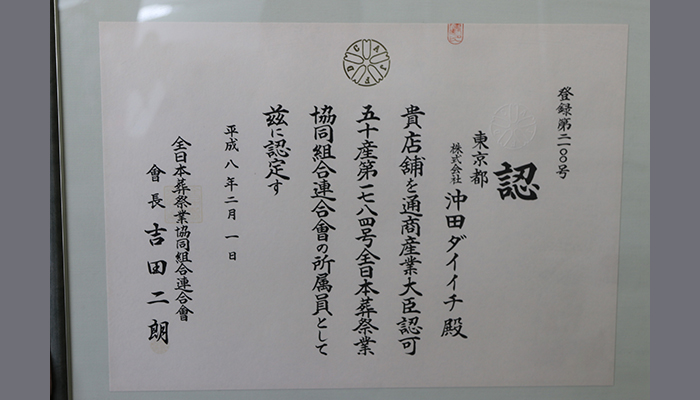 登録第二一〇〇号
認
東京都
株式会社 沖田ダイイチ殿
貴店舗を通商産業大臣認可
五十産第一七八四号全日本葬祭業
協同組合連合會の所属員として
茲に認定す
平成八年二月一日
全日本葬祭業協同組合連合會
會長 吉田二朗